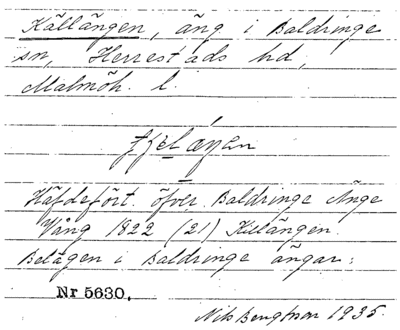 Källängen, äng i Baldringe
sn, Herrestads hd,
Malmöh. l.
Häfdefört. öfver Baldringe Änge
Vång 1822 (21) Killängen.
Belägen i Baldringe ängar.
Nr 5630.
Nils Bengtsson 1935.